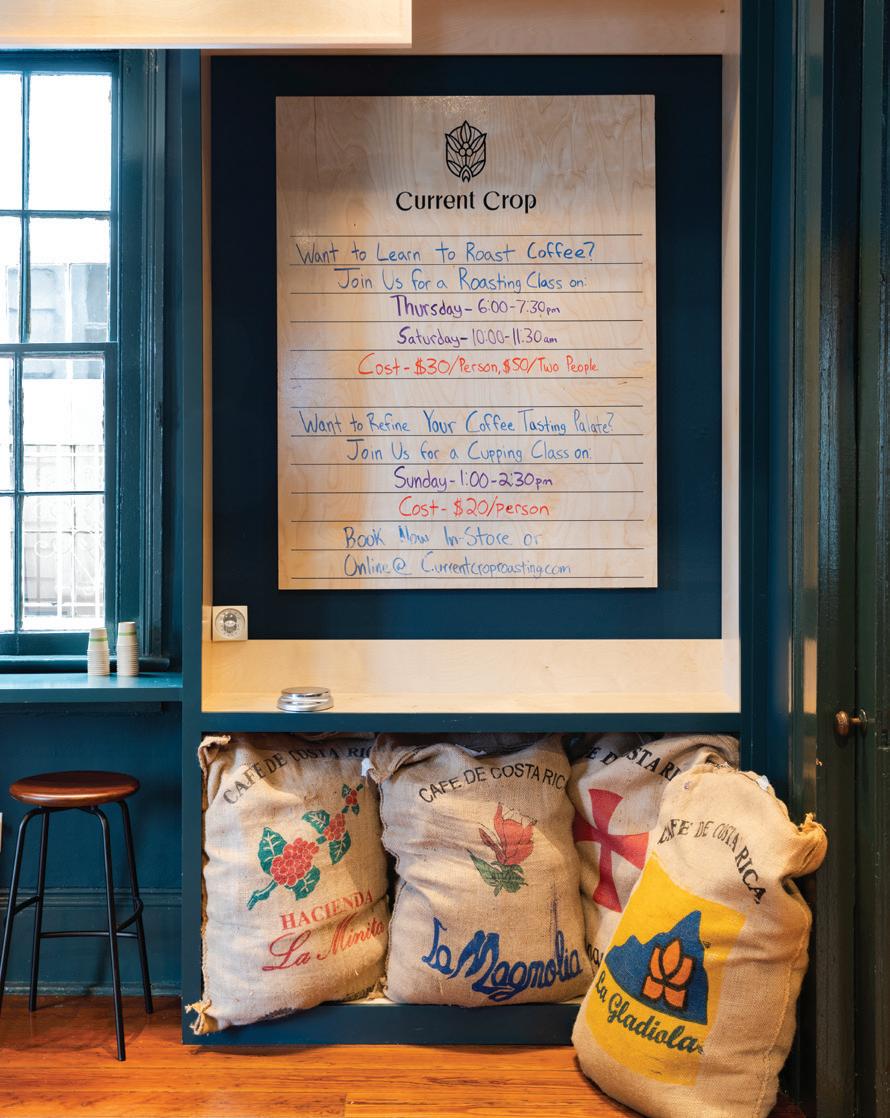 Current Crop
Want to Learn to Roast Coffee?
Join Us for a Roasting Class on:
Thursday- 6:00-7:30pm
Saturday- 10:00-11:30am
Cost- $30/Person, $50/Two People
Want to Refine Your Coffee Tasting Palate?
Join Us for a Cupping Class on:
Sunday- 1:00-2:30pm
Cost- $20/person
Book Now In-Store or
Online@ Currentcroproasting.com
CAFE DE COSTA RIC
HACIENDA
La Minita
CAFE DE COSTA RIC
La Magnolia
DE COSTA RI
CAFE DE COSTA RICA
La Gladiola